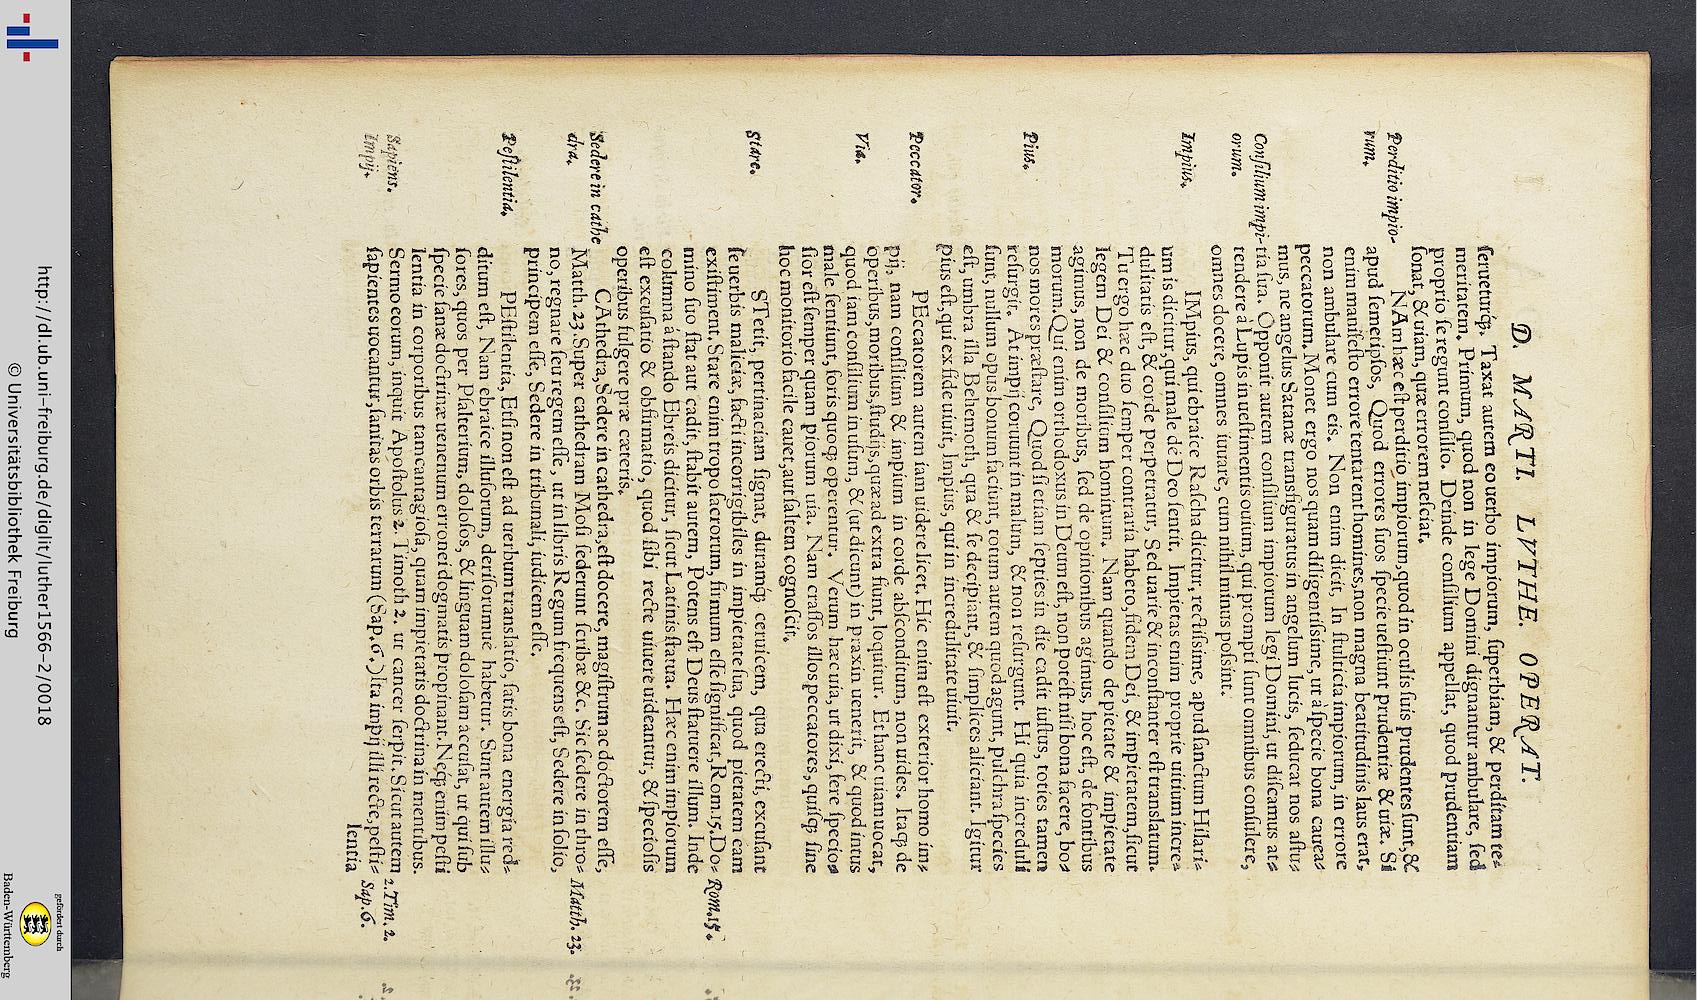 D. MARTI. LVTHE. OPERAT.
ſerueturq́;. Taxat autem eo uerbo impiorum, ſuperbiam, & perditam te⸗
meritatem. Primum, quod non in lege Domini dignantur ambulare, ſed
proprio ſe regunt conſilio. Deinde conſilium appellat, quod prudentiam
ſonat, & uiam, quæ errorem neſciat.
Perditio impio-
rum.
NAn hæc eſt perditio impiorum, quod in oculis ſuis prudentes ſunt, &
apud ſemetipſos, Quod errores ſuos ſpecie ueſtiunt prudentiæ & uiæ. Si
enim manifeſto errore tentarent homines, non magna beatitudinis laus erat,
non ambulare cum eis. Non enim dicit, In ſtulticia impiorum, in errore
peccatorum. Monet ergo nos quam diligentiſsime, ut à ſpecie bona cauea⸗
mus, ne angelus Satanæ transfiguratus in angelum lucis, ſeducat nos aſtu⸗
Conſilium impi-
orum.
tia ſua. Opponit autem conſilium impiorum legi Domini, ut diſcamus at⸗
tendere à Lupis in ueſtimentis ouium, qui prompti ſunt omnibus conſulere,
omnes docere, omnes iuuare, cum nihil minus poſsint.
Impius.
IMpius, qui ebraice Raſcha dicitur, rectiſsime, apud ſanctum Hilari⸗
um is dicitur, qui male de Deo ſentit. Impietas enim proprie uitium incre⸗
dulitatis eſt, & corde perpetratur, Sed uarie & inconſtanter eſt translatum.
Tu ergo hæc duo ſemper contraria habeto, fidem Dei, & impietatem, ſicut
legem Dei & conſilium hominum. Nam quando de pietate & impietate
agimus, non de moribus, ſed de opinionibus agimus, hoc eſt, de fontibus
morum. Qui enim orthodoxus in Deum eſt, non poteſt niſi bona facere, bo⸗
Pius.
nos mores præſtare, Quod ſi etiam ſepties in die cadit iuſtus, toties tamen
reſurgit. At impij coruunt in malum, & non reſurgunt. Hi quia increduli
ſunt, nullum opus bonum faciunt, totum autem quod agunt, pulchra ſpecies
eſt, umbra illa Behemoth, qua & ſe decipiant, & ſimplices aliciant. Igitur
pius eſt, qui ex fide uiuit, Impius, qui in incredulitate uiuit.
Peccator.
PEccatorem autem iam uidere licet. Hic enim eſt exterior homo im⸗
pij, nam conſilium & impium in corde abſconditum, non uides. Itaq; de
operibus, moribus, ſtudijs, quæ ad extra fiunt, loquitur. Et hanc uiam uocat,
Via.
quod iam conſilium in uſum, & (ut dicunt) in praxin uenerit, & quod intus
male ſentiunt, foris quoq; operentur. Verum hæc uia, ut dixi, fere ſpecio⸗
ſior eſt ſemper quam piorum uia. Nam craſſos illos peccatores, quiſq; ſine
hoc monitorio facile cauet, aut ſaltem cognoſcit.
Stare.
STetit, pertinaciam ſignat, duramq́; ceruicem, qua erecti, excuſant
ſe uerbis maliciæ, facti incorrigibiles in impietate ſua, quod pietatem eam
exiſtiment. Stare enim tropo ſacrorum, firmum eſſe ſignificat, Rom. 15. Do⸗
Rom. 15.
mino ſuo ſtat aut cadit, ſtabit autem, Potens eſt Deus ſtatuere illum. Inde
columna à ſtando Ebreis dicitur, ſicut Latinis ſtatua. Hæc enim impiorum
eſt excuſatio & obfirmatio, quod ſibi recte uiuere uideantur, & ſpecioſis
operibus fulgere præ cæteris.
Sedere in cathe
dra.
CAthedra, Sedere in cathedra, eſt docere, magiſtrum ac doctorem eſſe,
Matth. 23. Super cathedram Moſi ſederunt ſcribæ &c. Sic ſedere in thro⸗
Matth. 23.
no, regnare ſeu regem eſſe, ut in libris Regum frequens eſt, Sedere in ſolio,
principem eſſe, Sedere in tribunali, iudicem eſſe.
Peſtilentia.
PEſtilentia, Etſi non eſt ad uerbum translatio, ſatis bona energia red⸗
ditum eſt, Nam ebraice illuſorum, deriſorumuè habetur. Sunt autem illu⸗
ſores, quos per Pſalterium, doloſos, & linguam doloſam accuſat, ut qui ſub
ſpecie ſanæ doctrinæ uenenum erronei dogmatis propinant. Neq; enim peſti
lentia in corporibus tam cantagioſa, quam impietatis doctrina in mentibus.
Sapiens.
Impij.
Sermo eorum, inquit Apoſtolus 2. Timoth 2. ut cancer ſerpit. Sicut autem
2. Tim. 2.
ſapientes uocantur, ſanitas orbis terrarum (Sap. 6.) Ita impij illi recte, peſti⸗
Sap. 6.
lentia
http://dl.ub.uni-freiburg.de/diglit/luther1566-2/0018
© Universitätsbibliothek Freiburg
gefördert durch
Baden-Württemberg